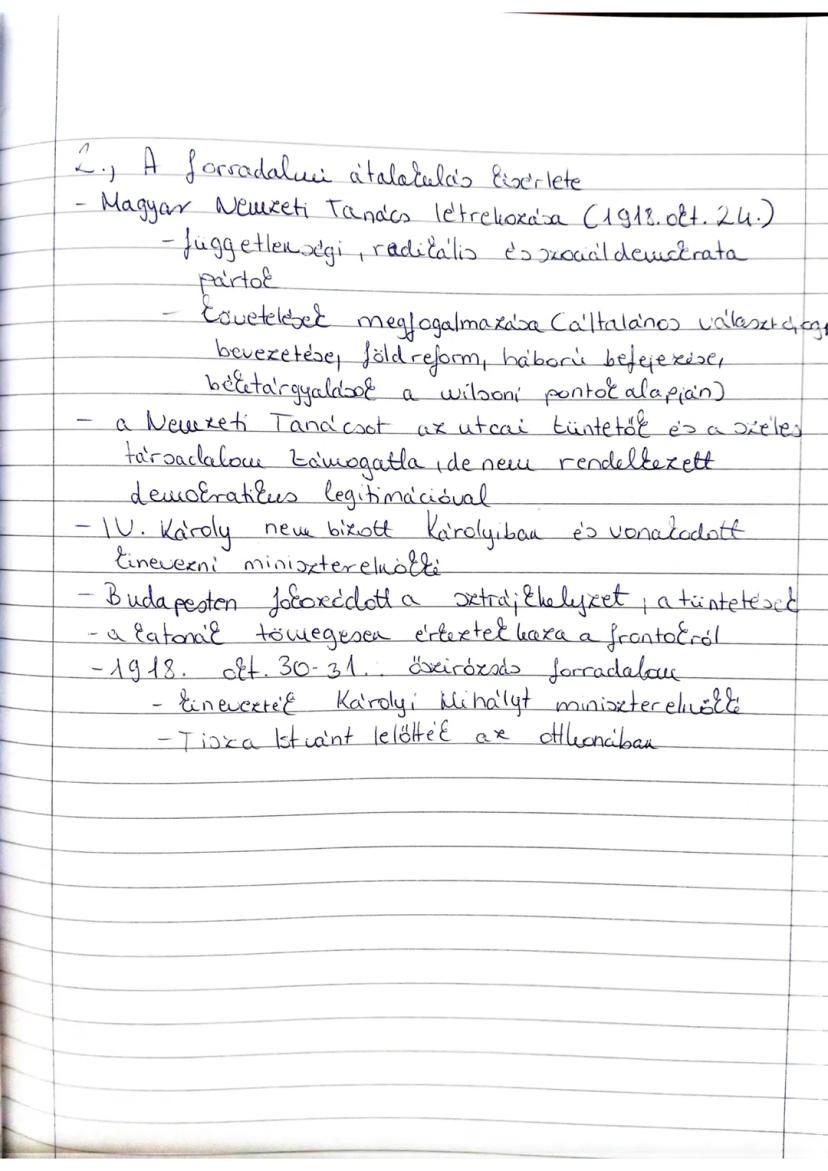 2., A forradalmi átalakulás kísérlete
- Magyar Nemzeti Tanács létrehozása (1918. okt. 24.)
- függetlenségi, radikális és szociáldemokrata
pártok
- követelések megfogalmazása (általános választójog
bevezetése, földreform, háború befejezése,
béketárgyalások a wilsoni pontok alapján)
- a Nemzeti Tanácsot az utcai tüntetők és a széles
társadalom támogatta, de nem rendelkezett
demokratikus legitimációval
- IV. Károly nem bízott Károlyiban és vonakodott
kinevezni miniszterelnökké
- Budapesten fokozódott a sztrájkhelyzet, a tüntetések
- a katonák tömegesen érkeztek haza a frontokról
- 1918. okt. 30-31.: őszirózsás forradalom
- kinevezték Károlyi Mihályt miniszterelnökké
- Tisza Istvánt lelőtték az otthonában